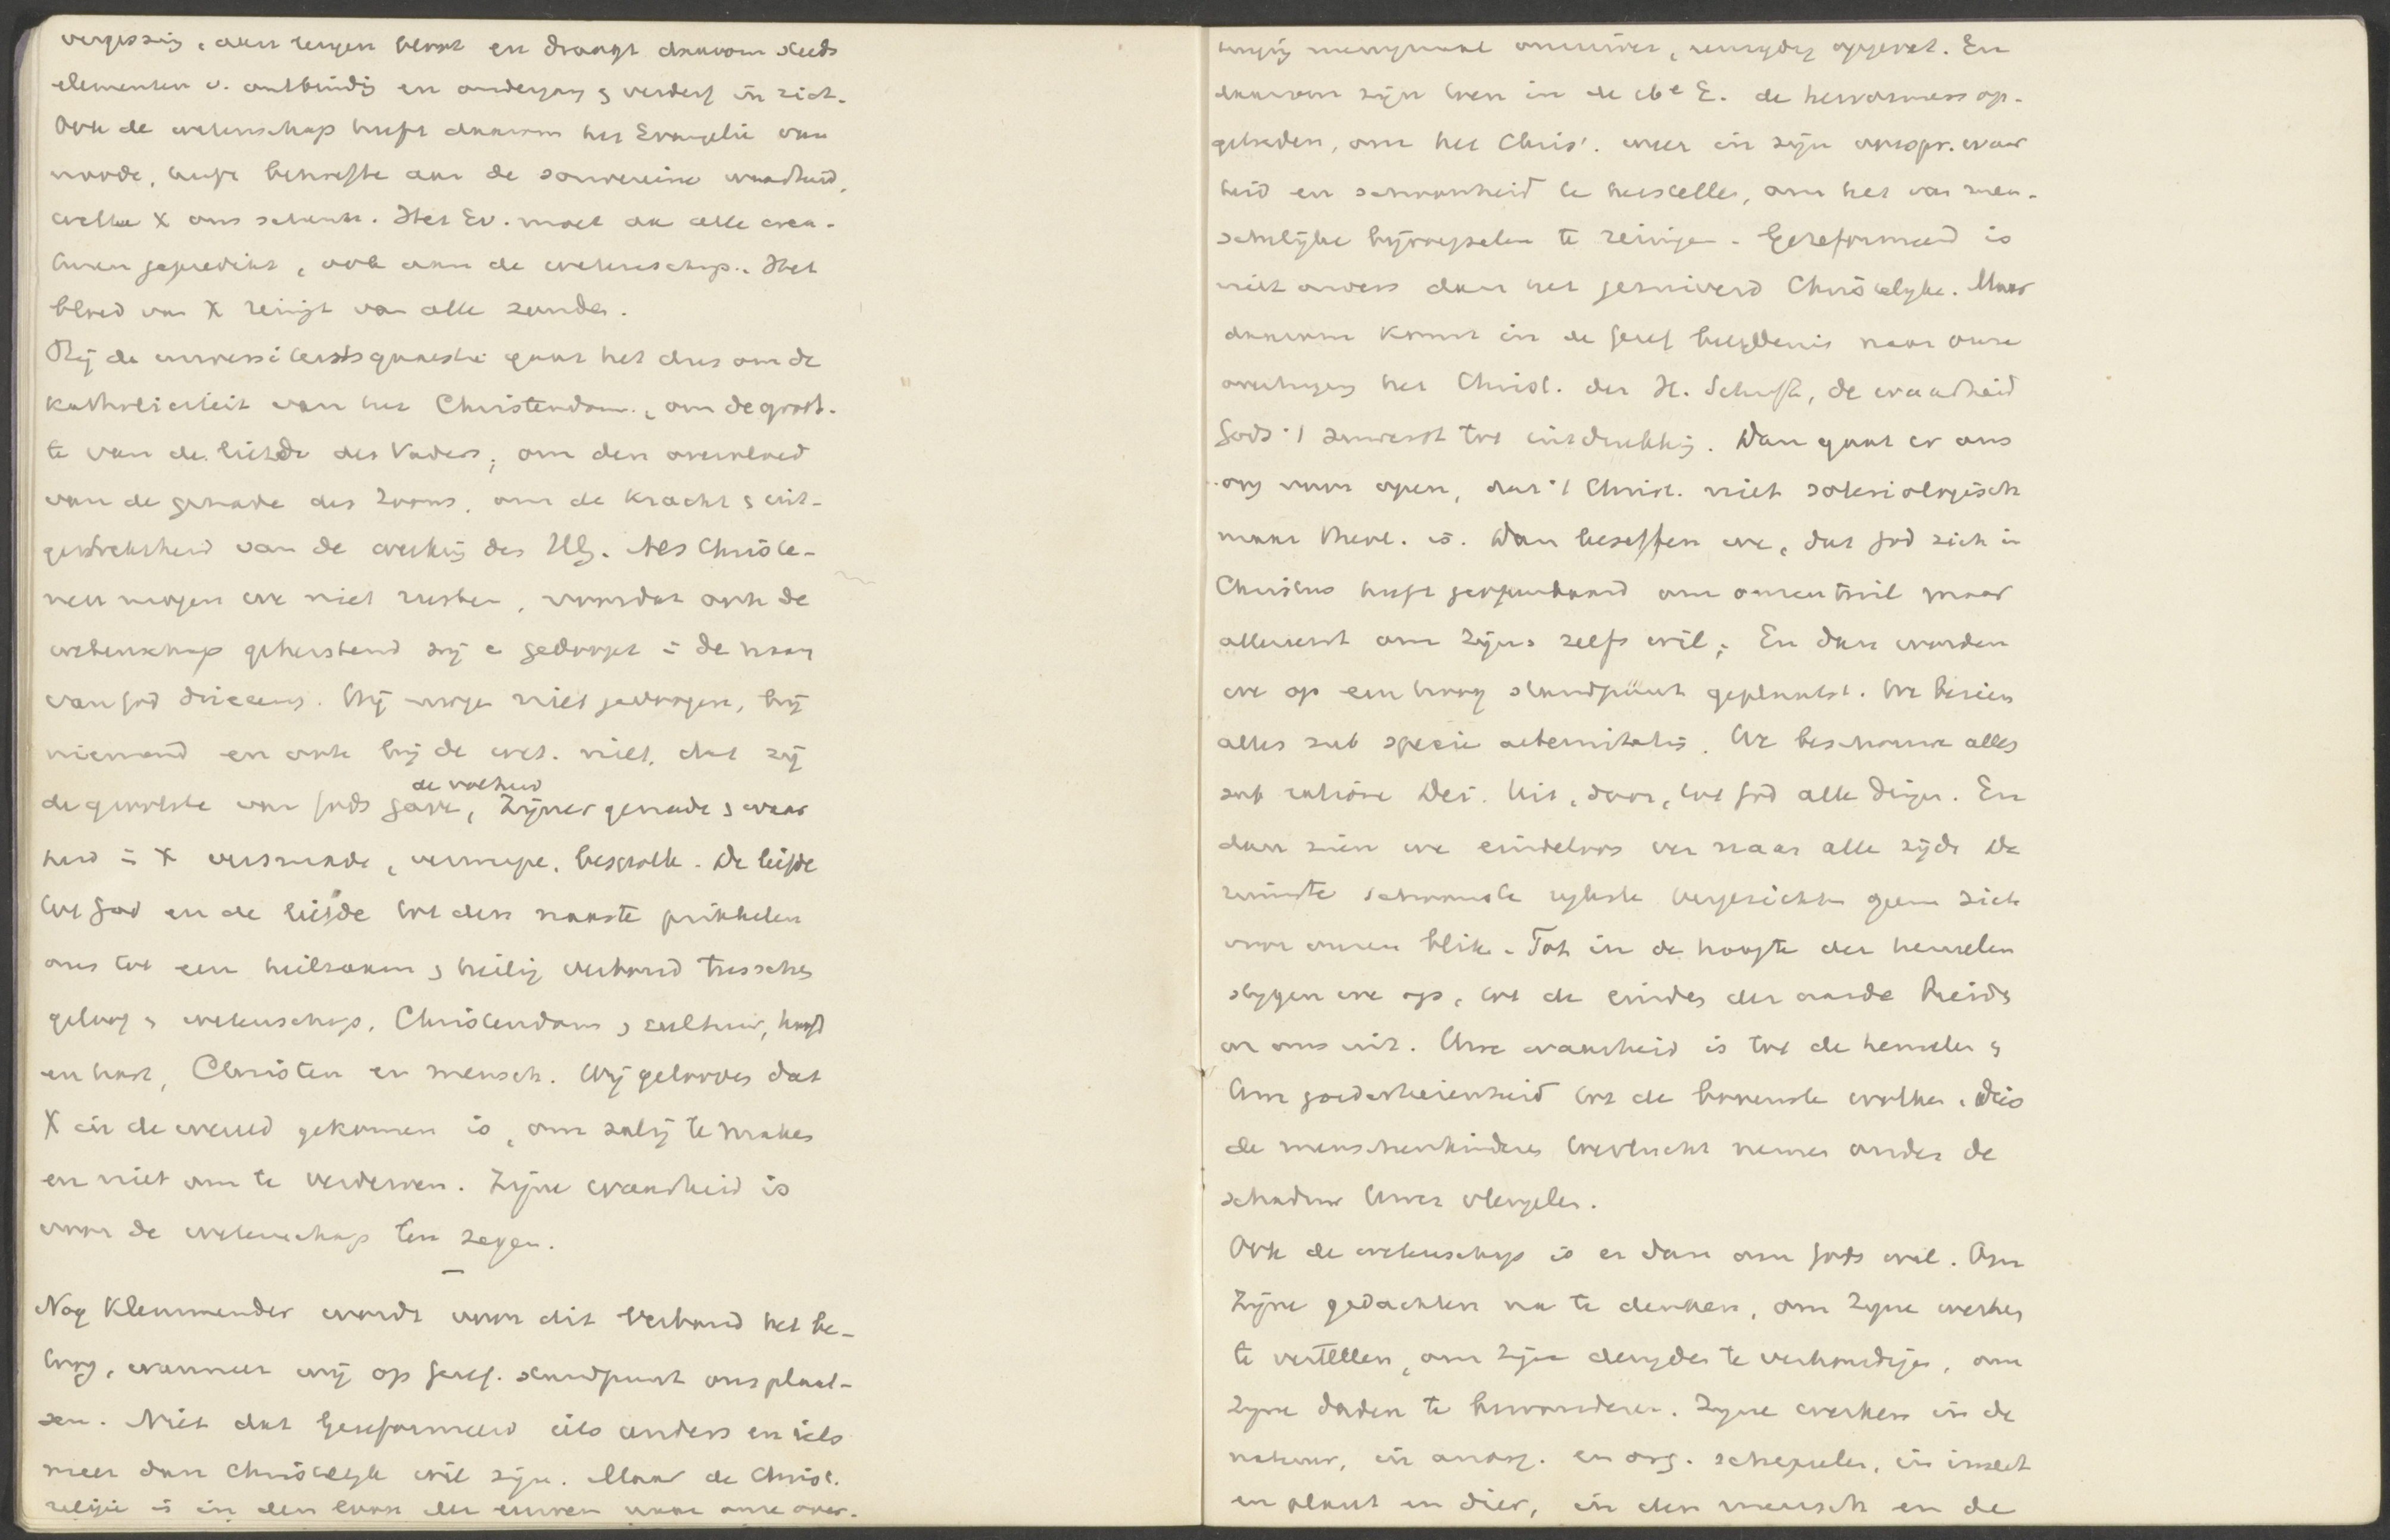 vergissing, aan leugen bloot en draagt daarom steeds
elementen v. ontbindig en ondergang & verderf in zich.
Ook de wetenschap heeft daarom het Evangelie van
noode, heeft behoefte aan de souvereine waarheid,
welke X ons schenkt. Het Ev. moet aan alle crea-
turen gepredikt, ook aan de wetenschap. Het
bloed van X reinigt van alle zonden.
Bij de universiteitsquaestie gaat het dus om de
katholiciteit van het Christendom, om de groot-
te van de liefde des Vaders, om den overvloed
van de genade des Zoons, om de kracht & uit-
gestrektheid van de werkig des HG. Als Christe-
nen mogen we niet rusten, voordat ook de
wetenschap gekerstend zij e gedoopt i de naam
van God drieeenig. Wij mogen niet gedoogen, bij
niemand en ook bij de wet. niet, dat zij
de volheid
de grootste van Gods gave, Zijner genade & waar
heid i X versmade, verwerpe, bespotte. De liefde
tot God en de liefde tot den naaste prikkelen
ons tot een heilzaam & heilig verband tusschen
geloof & wetenschap, Christendom & cultuur, hoofd
en hart, Christen en mensch. Wij gelooven dat
X in de wereld gekomen is, om zalig te maken
en niet om te verderven. Zijne waarheid is
voor de wetenschap ten zegen.
—
Nog klemmender wordt voor dit verband het be-
toog, wanneer wij op Geref. standpunt ons plaat-
sen. Niet dat Gereformeerd iets anders en iets
meer dan Christelyk wil zijn. Maar de Christ.
religie is in den loop der eeuwen naar onze over-
tuiging menigmaal onzuiver, eenzydig opgevat. En
daarom zijn toen in de 16e E. de hervormers op-
getreden, om het Chris'. weer in zijn oorspr. waar
heid en schoonheid te herstellen, om het van men-
schelijke bijvoegselen te reinigen. Gereformeerd is
niet anders dan het gezuiverd Christelyke. Maar
daarom komt in de Geref belydenis naar onze
overtuiging het Christ. der H. Schrift, de waarheid
Gods 't zuiverst tot uitdrukkig. Dan gaat er ons
oog voor open, dat 't Christ. niet soteriologisch
maar theol. is. Dan beseffen we, dat God zich in
Christus heeft geopenbaard om onzentwil maar
allereerst om Zijns zelfs wil. En dan worden
we op een hoog standpunt geplaatst. We bezien
alles sub specie aeternitatis. We beschouwen alles
sub ratione Dei. Uit, door, tot God alle dingen. En
dan zien we eindeloos ver naar alle zijde De
ruimste schoonste rykste vergezichten open zich
voor onzen blik. Tot in de hoogte der hemelen
stygen we op, tot de einden der aarde breidt
we ons uit. Uwe waarheid is tot de hemelen &
Uw goedertierenheid tot de bovenste wolken. Dies
de menschenkinderen toevlucht nemen onder de
schaduw Uwer vleugelen.
Ook de wetenschap is er dan om Gods wil. Om
Zijne gedachten na te denken, om Zyne werken
te vertellen, om Zijne deugden te verkondigen, om
Zyne daden te bewonderen. Zyne werken in de
natuur, in anorg. en org. schepselen, in insect
en plant en dier, in den mensch en de